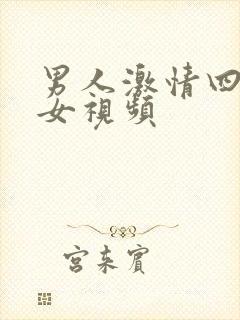 男人激情四
女視頻
宮本賓